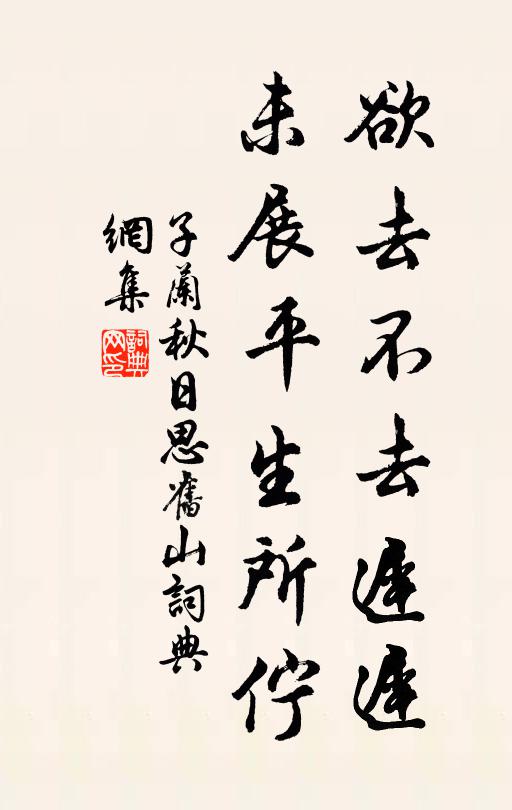 欲去不去遲遲
未展平生所佇
子蘭秋日思舊山詞典
網集
詞典
网印